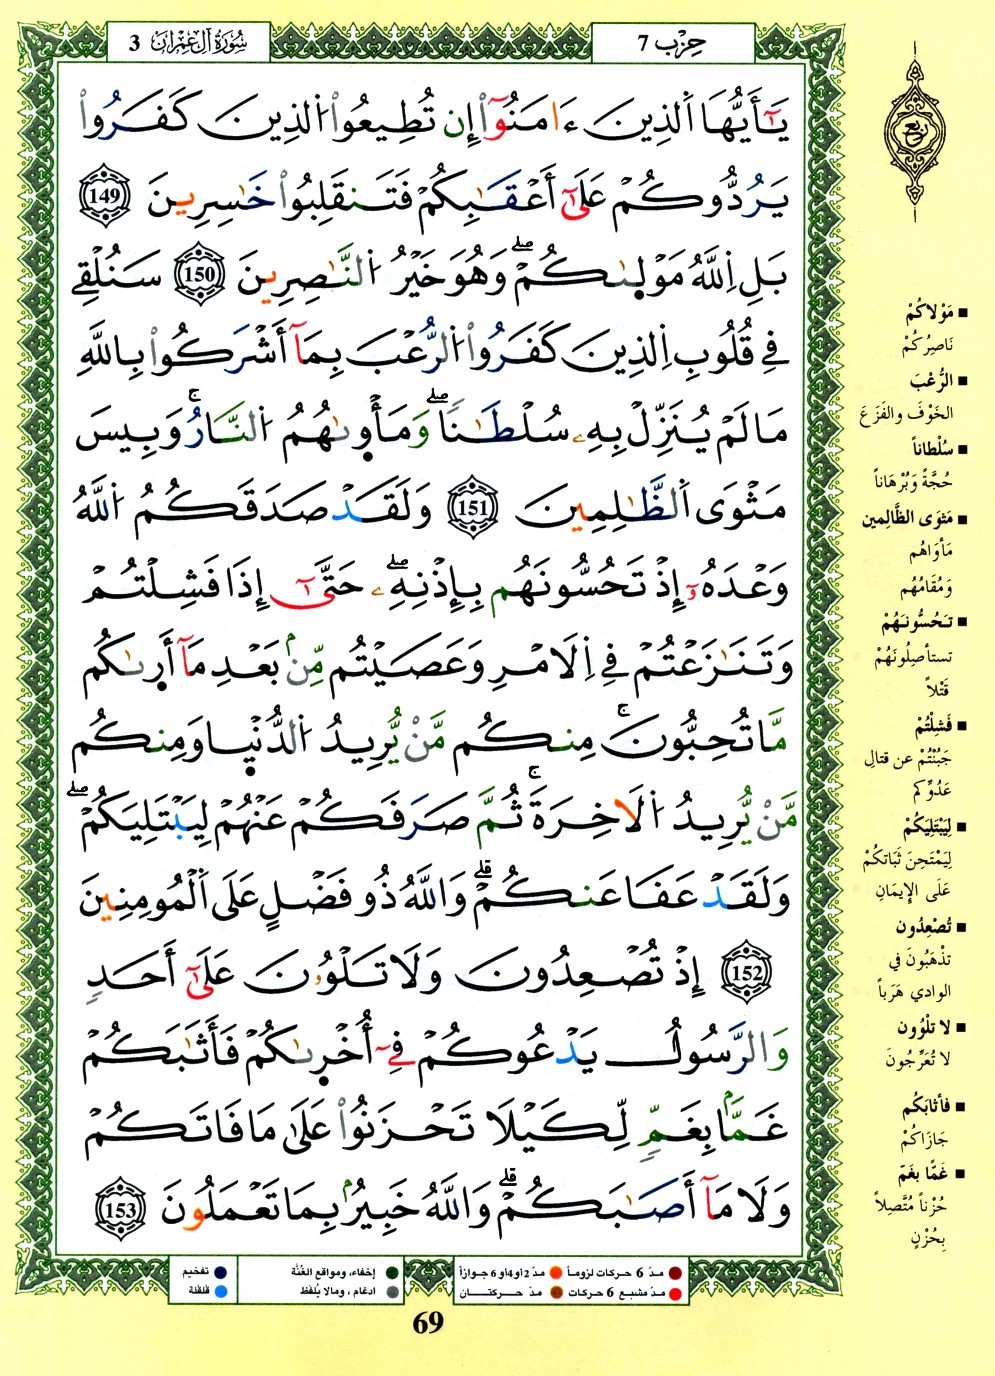 سُورَةُ آلِ عِمْرَانَ 3
حِزْب 7
ربع
يَٰٓأَيُّهَا اَ۬لذِينَ ءَامَنُوٓاْ إِن تُطِيعُواْ اُ۬لذِينَ كَفَرُواْ
يَرُدُّوكُمْ عَلَىٰٓ أَعْقَٰبِكُمْ فَتَنقَلِبُواْ خَٰسِرِينَ 149
بَلِ اِ۬للَّهُ مَوْل۪ىٰكُمْۖ وَهُوَ خَيْرُ اُ۬لنَّٰصِرِينَ 150 سَنُلْقِے
فِے قُلُوبِ اِ۬لذِينَ كَفَرُواْ اُ۬لرُّعْبَ بِمَآ أَشْرَكُواْ بِاللَّهِ
مَا لَمْ يُنَزِّلْ بِهِۦ سُلْطَٰناٗۖ وَمَأْو۪ىٰهُمُ اُ۬لنَّارُۚ وَبِيسَ
مَثْوَى اَ۬لظَّٰلِمِينَ 151 وَلَقَدْ صَدَقَكُمُ اُ۬للَّهُ
وَعْدَهُۥٓ إِذْ تَحُسُّونَهُم بِإِذْنِهِۦۖ حَتَّىٰٓ إِذَا فَشِلْتُمْ
وَتَنَٰزَعْتُمْ فِے اِ۬لَامْرِ وَعَصَيْتُم مِّنۢ بَعْدِ مَآ أَر۪ىٰكُم
مَّا تُحِبُّونَۚ مِنكُم مَّنْ يُّرِيدُ اُ۬لدُّنْي۪ا وَمِنكُم
مَّنْ يُّرِيدُ اُ۬لَاخِرَةَۚ ثُمَّ صَرَفَكُمْ عَنْهُمْ لِيَبْتَلِيَكُمْۖ
وَلَقَدْ عَفَا عَنكُمْۗ وَاللَّهُ ذُو فَضْلٍ عَلَى اَ۬لْمُومِنِينَ
152 إِذْ تُصْعِدُونَ وَلَا تَلْوُۥنَ عَلَىٰٓ أَحَدٖ
وَالرَّسُولُ يَدْعُوكُمْ فِےٓ أُخْر۪ىٰكُمْ فَأَثَٰبَكُمْ
غَمَّۢا بِغَمّٖ لِّكَيْلَا تَحْزَنُواْ عَلَىٰ مَا فَاتَكُمْ
وَلَا مَآ أَصَٰبَكُمْۗ وَاللَّهُ خَبِيرُۢ بِمَا تَعْمَلُونَ 153
■ مَوْلاكُمْ
نَاصِرُكُمْ
■ الرُّعْبَ
الخَوْفَ والفَزَعَ
■ سُلْطاناً
حُجَّةً وَبُرْهَاناً
■ مَثوَى الظَّالِمين
مَأوَاهُم
وَمُقَامُهُم
■ تَحُسُّونَهُمْ
تستأصِلُونَهُمْ
قَتْلاً
■ فَشِلْتُمْ
جَبُنْتُمْ عن قتالِ
عَدُوِّكم
■ لِيَبْتَلِيَكُمْ
لِيَمْتَحِنَ ثَبَاتكُمْ
عَلَى الإِيمَانِ
■ تُصْعِدُون
تَذْهَبُونَ في
الوادي هَرَباً
■ لا تلْوُون
لا تُعَرِّجُونَ
■ فأثابَكُم
جَازَاكُمْ
■ غَمًّا بغَمّ
حُزْناً مُتَّصِلاً
بِحُزْنٍ
مدّ 6 حركات لزوماً مدّ 2 أو 4 أو 6 جوازاً إخفاء، ومواقع الغُنَّة تفخيم
مدّ مشبع 6 حركات مدّ حركتان ادغام، وما لا يُلفَظ قلقلة
69